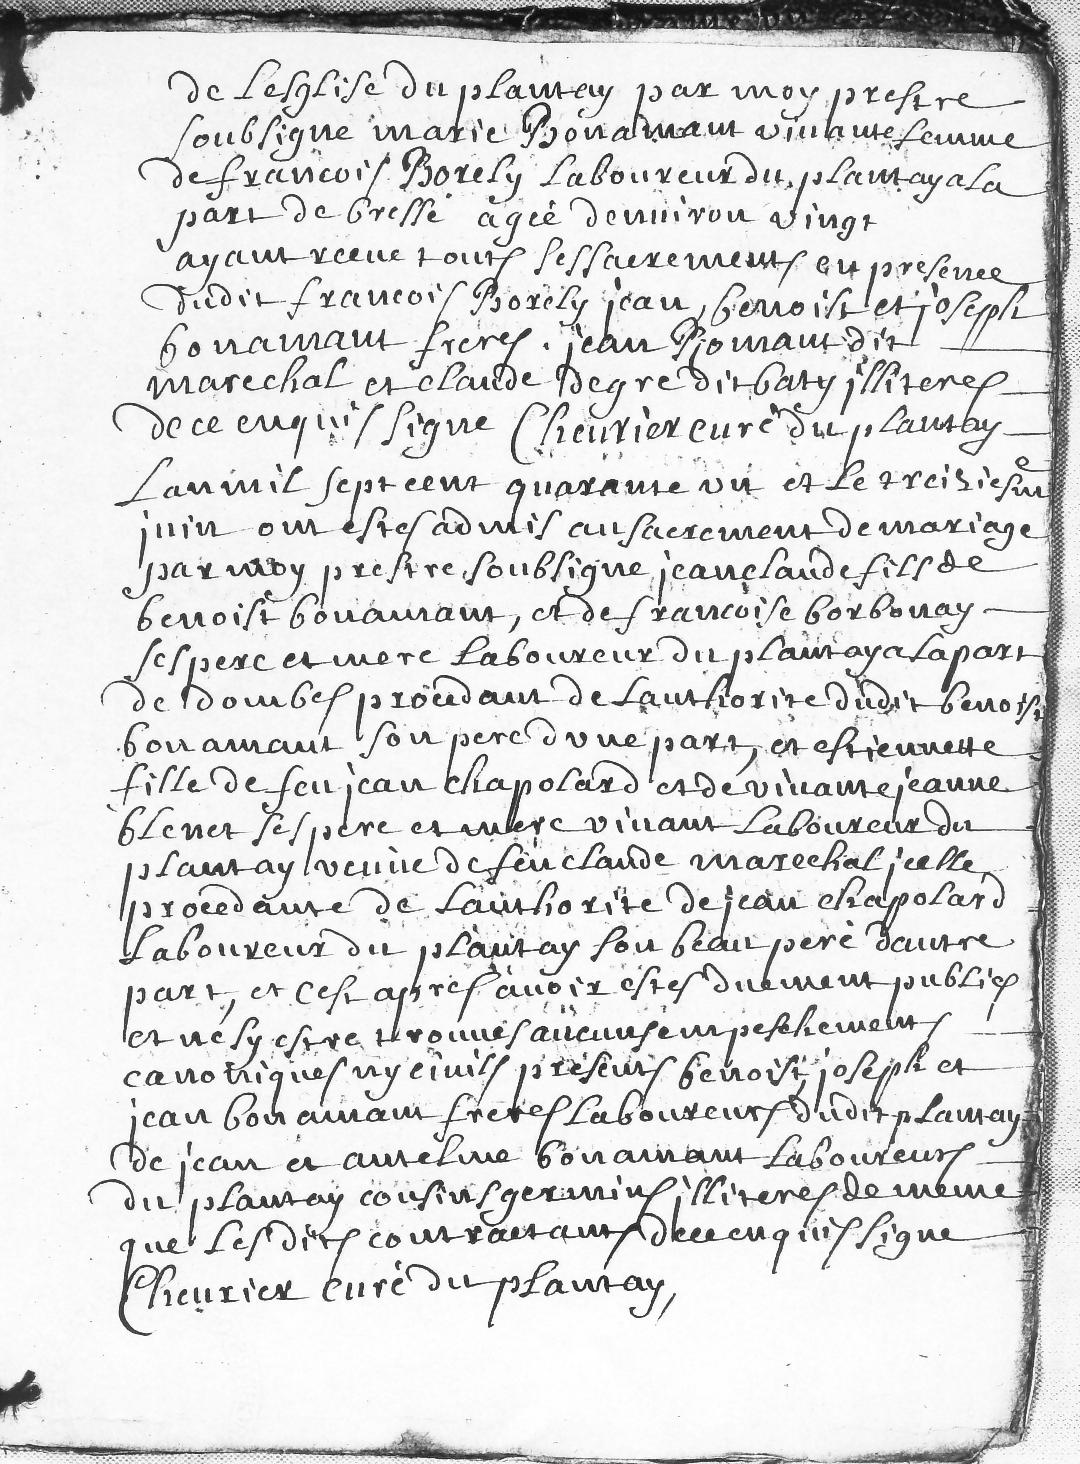 de lesglise du plantay par moy prestre
soubsigne marie Bonamant vivante femme
de francois Borely laboureur du plantay a la
part de bresse agée denuiron vingt
ayant receue touts ses sacrements en presence
dudit francois Borely jean, benoist et joseph
bonamant freres. jean Romant dit
marechal et claude degre dit baty illiteres
de ce enquis signe Cheurier curé du plantay
Lan mil sept cent quarante vn et le treiziesme
juin ont estes admis au sacrement de mariage
par moy prestre soubsigne jean claude fils de
benoist bonamant, et de francoise borbonay
ses pere et mere laboureur du plantay a la part
de dombes procedant de lauthorite dudit benoist
bonamant son pere dvne part, et estiennette
fille de feu jean chapolard et de viuante jeanne
blenet ses pere et mere viuant laboureur du
plantay veuue de feu claude marechal jcelle
procedante de lauthorite de jean chapolard
laboureur du plantay son beau pere dautre
part, et cest apres auoir estes duement publies
et ne sy estre trouués aucuns empeschements
canoniques ny ciuils présents benoist, joseph et
jean bonamant freres laboureurs dudit plantay
de jean et antelme bonamant laboureurs
du plantay cousins germins illiteres de meme
que les dits contractants de ce enquis signe
Cheurier curé du plantay,